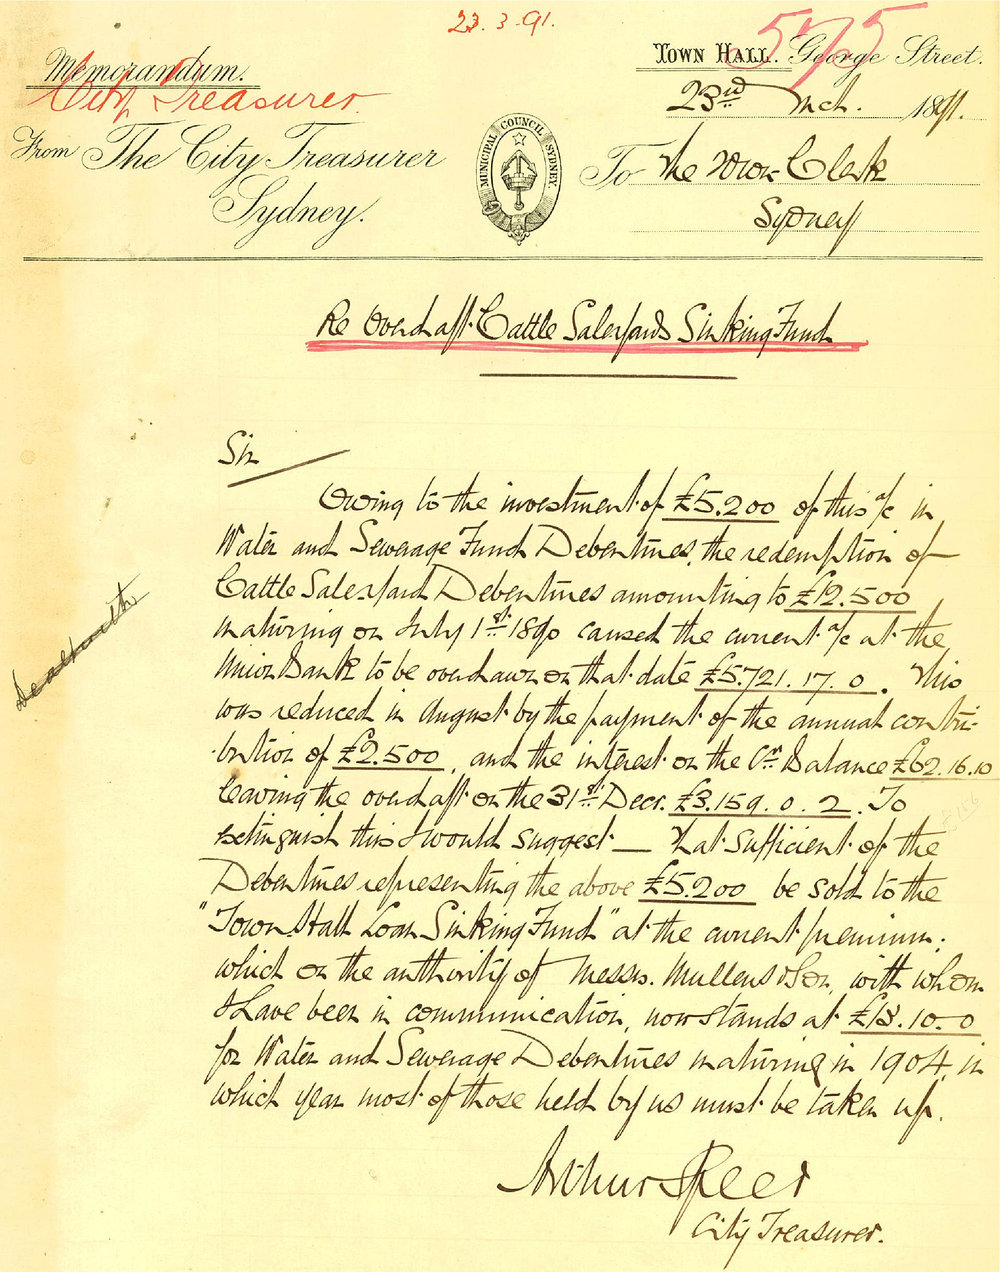 23.3.91.
575
Memorandum.
City Treasurer
From The City Treasurer
Sydney.
MUNICIPAL COUNCIL SYDNEY.
TOWN HALL. George Street.
23rd Mch. 1891.
To The Town Clerk
Sydney
Re Overdraft Cattle Saleyards Sinking Fund
Sir
Owing to the investment of £5.200 of this a/c in
Water and Sewerage Fund Debentures, the redemption of
Cattle Saleyard Debentures amounting to £12.500
maturing on July 1st 1890 caused the current a/c at the
Union Bank to be overdrawn on that date £5.721.17.0. This
was reduced in August by the payment of the annual contri-
-bution of £2.500, and the interest on the Cr Balance £62.16.10
leaving the overdraft on the 31st Decr. £3.159.0.2. To
extinguish this I would suggest — that sufficient of the
Debentures representing the above £5.200 be sold to the
"Town Hall Loan Sinking Fund" at the current premium;
which on the authority of Messrs. Mullens & Son, with whom
I have been in communication, now stands at £13.10.0
for Water and Sewerage Debentures maturing in 1904, in
which year most of those held by us must be taken up.
Arthur Speer
City Treasurer.
Dealt with